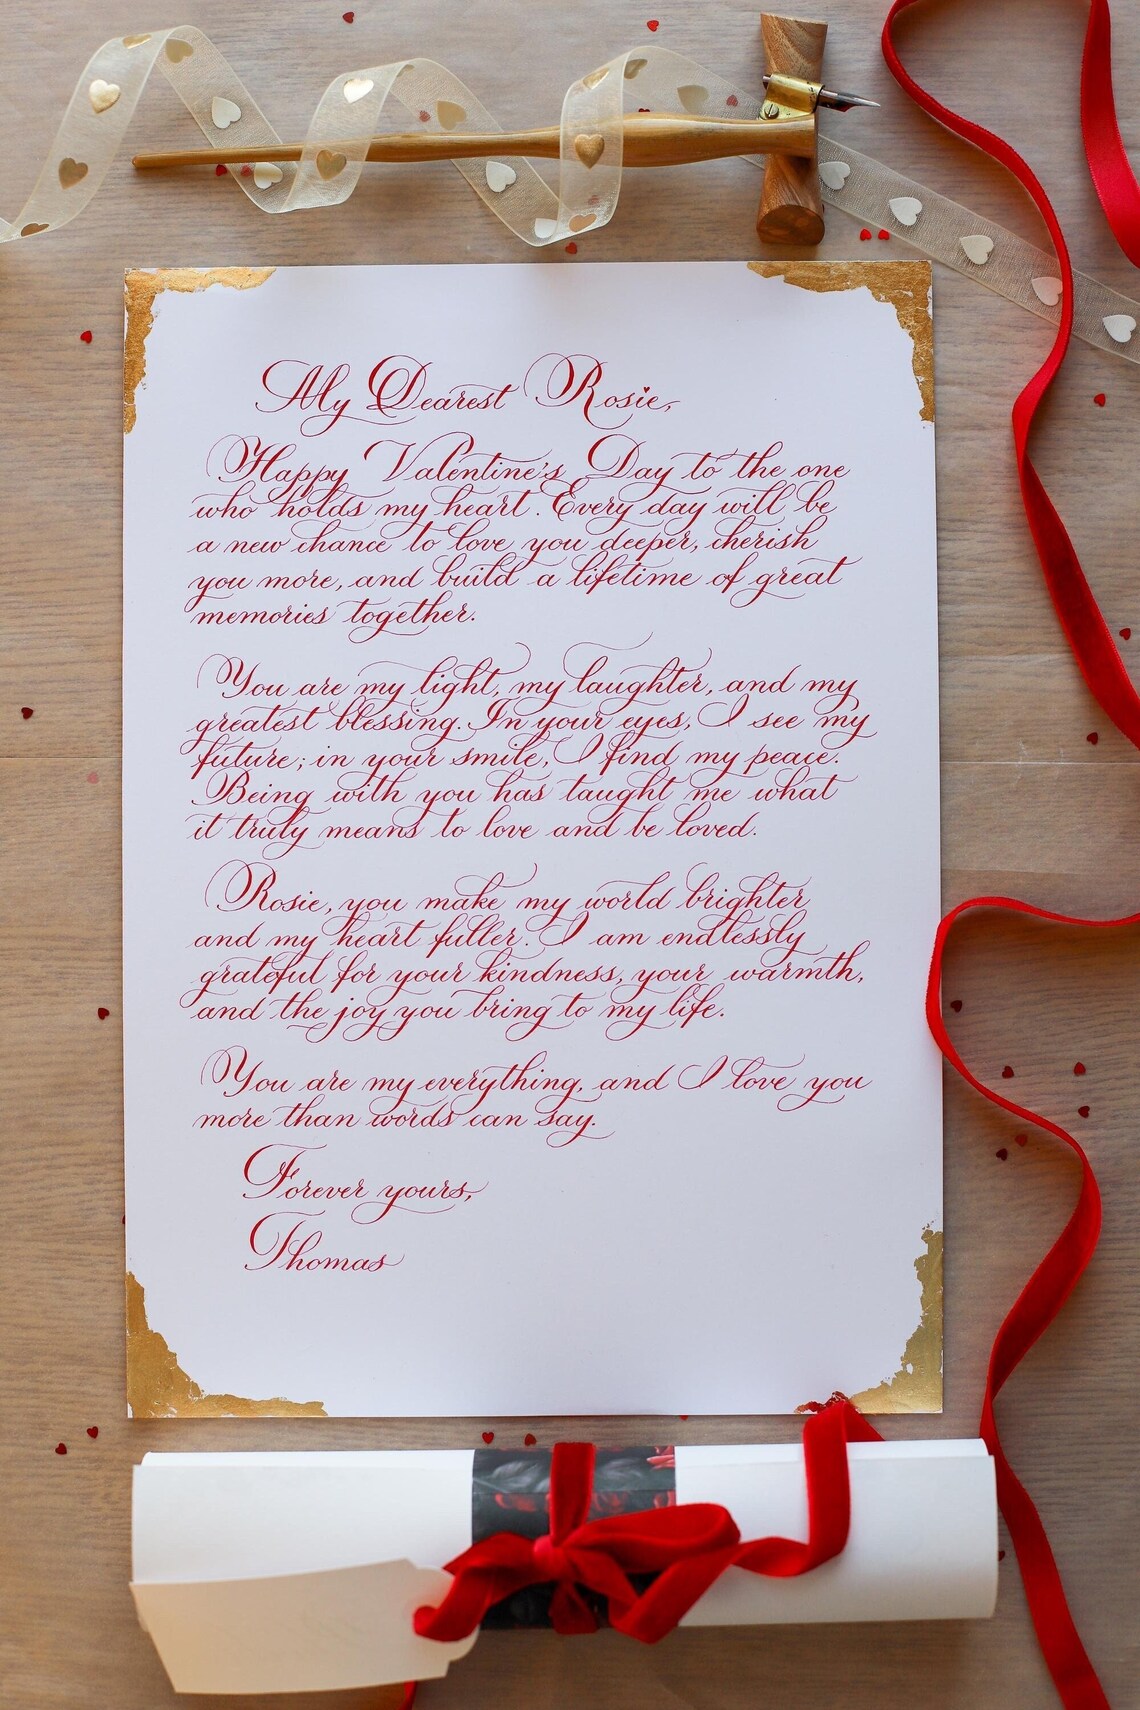 My Dearest Rosie,
Happy Valentine's Day to the one
who holds my heart. Every day will be
a new chance to love you deeper, cherish
you more, and build a lifetime of great
memories together.
You are my light, my laughter, and my
greatest blessing. In your eyes, I see my
future; in your smile, I find my peace.
Being with you has taught me what
it truly means to love and be loved.
Rosie, you make my world brighter
and my heart fuller. I am endlessly
grateful for your kindness, your warmth,
and the joy you bring to my life.
You are my everything, and I love you
more than words can say.
Forever yours,
Thomas